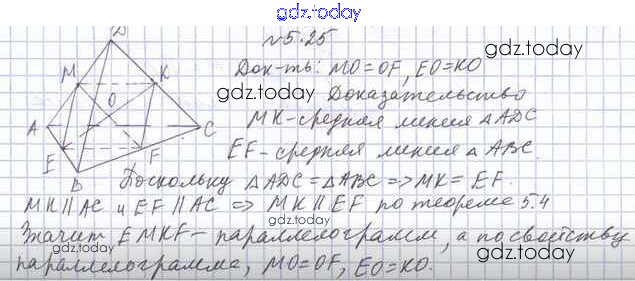 gdz.today
№5.25
D
M
K
O
A
C
E
F
B
Док-ть: MO=OF, EO=KO
gdz.today
gdz.today
Доказательство
MK-средняя линия △ADC
EF-средняя линия △ABC.
gdz.today
Поскольку △ADC=△ABC => MK=EF.
MK∥AC и EF∥AC => MK∥EF по теореме 5.4
Значит EMKF-параллелограмм, а по свойству
gdz.today
gdz.today
параллелограмма, MO=OF, EO=KO.